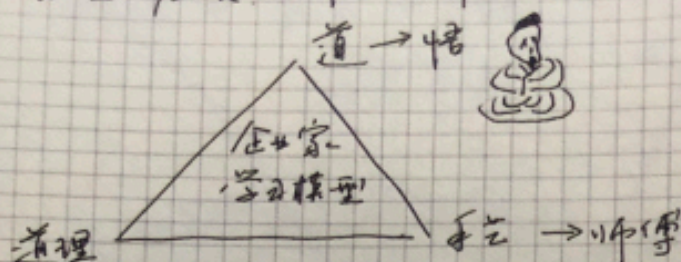 道 → 悟
企业家
学习模型
道理
手艺 → 师傅